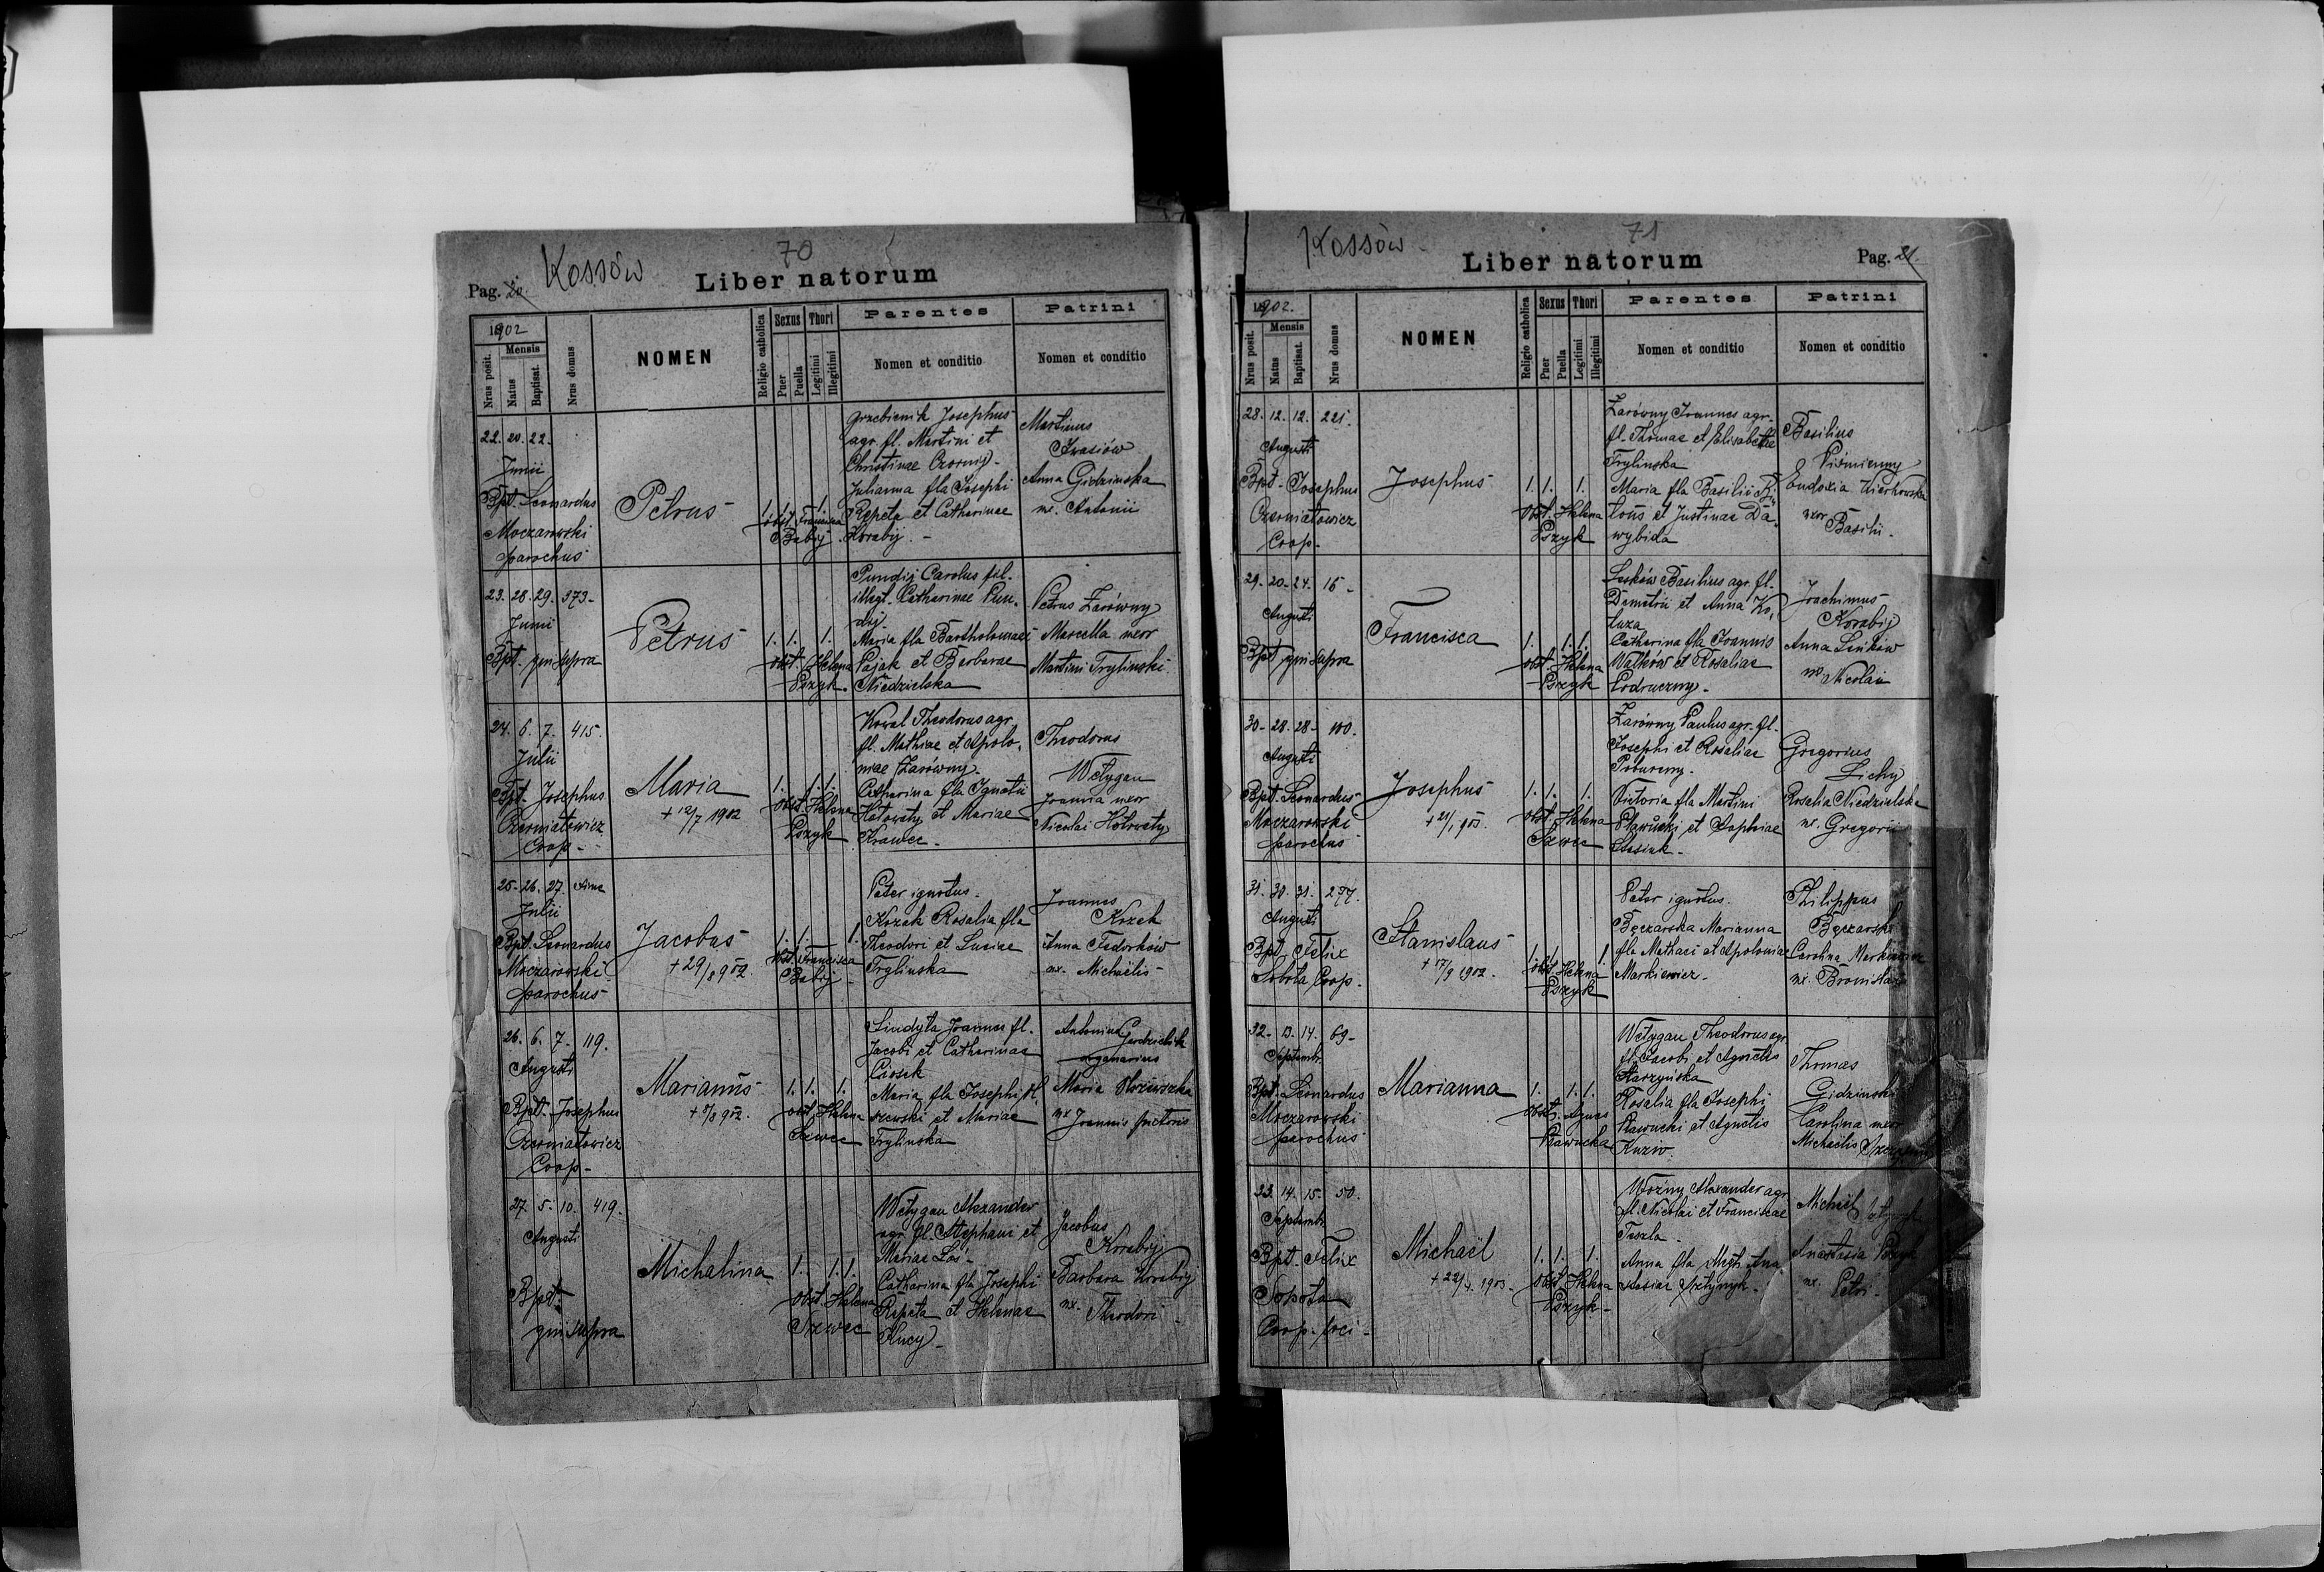 70
Kossów
Pag. 20.
Liber natorum
1902
Mensis
Nrus posit.
Natus
Baptisat.
Nrus domus
NOMEN
Religio catholica
Sexus
Puer
Puella
Thori
Legitimi
Illegitimi
Parentes
Nomen et conditio
Patrini
Nomen et conditio
22. 20. 22.
Junii
Bpt. Leonardus
Moczarowski
parochus
Petrus
1. 1. 1.
obst. Francisca
Babij
Grzebienik Josephus
agr. fl. Martini et
Christinae Czornij -
Julianna fla Josephi
Repeta et Catharinae
Korabij. -
Martinus
Anna Gidzinska
ux. Antonii
23. 28. 29. 373.
Junii
Bpt. qui supra
Petrus
1. 1. 1.
obst. Helena
Pszyk.
Pundij Carolus fil.
illegt. Catharinae Pun.
dij.
Maria fla Bartholomaei
Pająk et Barbarae
Niedzielska
Petrus Zarówny
Marcella uxor
Martini Trylinski.
24. 6. 7. 415.
Julii
Bpt. Josephus
Czerniatowicz
Coop -
Maria
+ 12/7 1902
1. 1. 1.
obst. Helena
Pszyk
Kowal Theodorus agr.
fl. Mathiae et Apolo.
niae Zarówny -
Catharina fla Ignatii
Hotowaty et Mariae
Krawec -
Theodorus
Wetygan
Joanna uxor
Nicolai Hotowaty
25. 26. 27.
Julii
Bpt. Leonardus
Moczarowski
parochus
Jacobus
+ 29/8 902
1. 1. 1.
obst. Francisca
Babij
Pater ignotus -
Kozak Rosalia fla
Theodori et Luciae
Trylinska
Joannes
Kozak
Anna Fedorków
ux. Michaëlis -
26. 6. 7. 119.
Augusti
Bpt. Josephus
Czerniatowicz
Coop -
Marianus
+ 8/8 902.
1. 1. 1.
obst. Helena
Szwec
Lindyta Joannes fl.
Jacobi et Catharinae
Ciosek
Maria fla Josephi
szewski et Mariae
Trylinska
organarius
Maria
ux Joannis
27. 5. 10. 419.
Augusti
Bpt.
qui supra
Michalina
1. 1. 1.
obst. Helena
Szwec
Wetygan Alexander
agr. fl. Stephani et
Mariae Łoś -
Catharina fla Josephi
Repeta et Helenae
Kucy -
Jacobus
Korabij
Barbara Korabij
ux. Theodori -
71
Kossów
Liber natorum
Pag. 21.
1902.
Mensis
Nrus posit.
Natus
Baptisat.
Nrus domus
NOMEN
Religio catholica
Sexus
Puer
Puella
Thori
Legitimi
Illegitimi
Parentes
Nomen et conditio
Patrini
Nomen et conditio
28. 12. 12. 221.
Augusti
Bpt. Josephus
Czerniatowicz
Coop -
Josephus
1. 1. 1.
Obst. Helena
Pszyk
Zarówny Joannes agr.
fl. Thomae et Elisabethae
Trylinska
Maria fla Basilii
et Justinae Da.
wybida
Basilius
Piśmienny
Eudoxia
uxor Basilii -
29. 20. 24. 15 -
Augusti
Bpt. qui supra
Francisca
1. 1. 1.
obst. Helena
Pszyk
Leśków Basilius agr. fl.
Demetrii et Anna Ko.
łuza
Catharina fla Joannis
Wałków et Rosaliae
Podruczny -
Joachimus
Korabij
Anna
ux Nicolai
30 - 28. 28. 100.
Augusti
Bpt. Leonardus
Moczarowski
parochus
Josephus
+ 21/1 903.
1. 1. 1.
obst. Helena
Szwec
Zarówny Paulus agr. fl.
Josephi et Rosaliae
Victoria fla Martini
Pławucki et Sophiae
Stasiuk -
Gregorius
Lichy
Rosalia Niedzielska
ux. Gregorii
31. 30. 31. 277.
Augusti
Bpt. Felix
Sobota Coop -
Stanislaus
+ 17/9 1902.
1. 1. 1.
obst. Helena
Pszyk
Pater ignotus.
Bęczarska Marianna
fla Mathaei et Apoloniae
Markiewicz -
Philippus
Bęczarski
Carolina Markiewicz
ux. Bronislai
32. 13. 14. 69 -
Septembr.
Bpt. Leonardus
Moczarowski
parochus
Marianna
1. 1. 1.
obst. Agnes
Pławucka
Wetygan Theodorus agr.
fl. Jacobi et Agnetis
Starzyńska
Rosalia fla Josephi
Pławucki et Agnetis
Kuziw.
Thomas
Gidzinski
Carolina uxor
Michaelis
33. 14. 15. 50.
Septembr
Bpt. Felix
Sobota
Coop. loci -
Michaël
+ 22/4 1903 -
1. 1. 1.
obst. Helena
Pszyk -
Woźny Alexander agr.
fl. Nicolai et Franciscae
Teszla -
Anna fla Mich. Ana.
stasiae Sztynyk -
Michaël
Anastasia
ux. Petri -